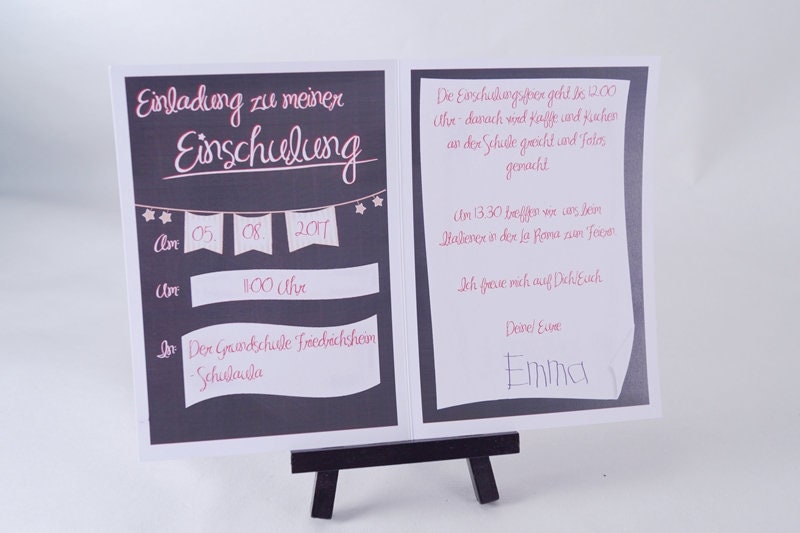 Einladung zu meiner
Einschulung
Am: 05. 08. 2017
Um: 11:00 Uhr
In: Der Grundschule Friedrichsheim
-Schulaula
Die Einschulungsfeier geht bis 12.00
Uhr - danach wird Kaffe und Kuchen
an der Schule greicht und Fotos
gemacht.
Um 13.30 treffen wir uns beim
Italiener in der La Roma zum Feiern.
Ich freue mich auf Dich/Euch
Deine/Eure
Emma